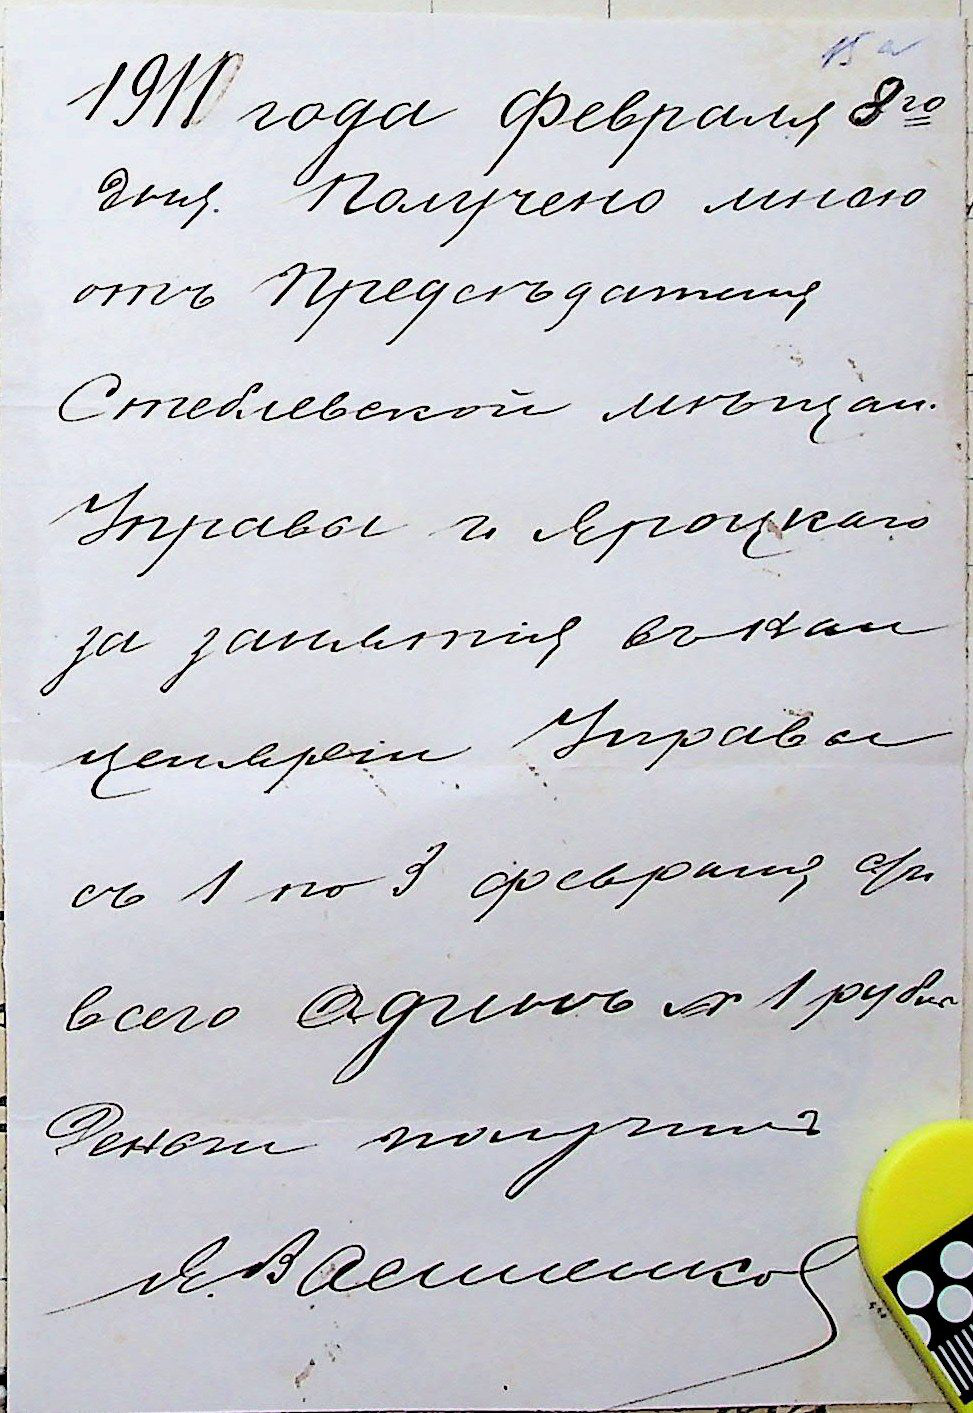 15 а
1911 года Февраля 8го
дня. Получено мною
отъ Председателя
Стеблевской мѣщан.
Управы г. Яроцкаго
за занятія въ кан
целяріи Управы
съ 1 по 3 февраля с/г.
всего Одинъ 1 рубль
Деньги получилъ
Я. Василенко